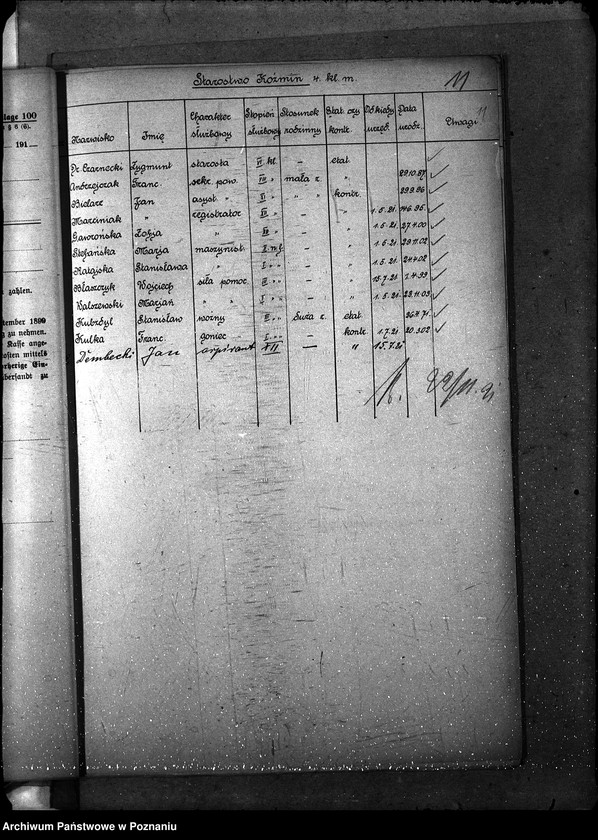 lage 100
§ 6 (6).
191
zahlen.
tember 1899
zu nehmen.
Kasse ange-
osten mittels
orherige Ein-
übersandt zu
Starostwo Koźmin 4. kl. m.
11
Nazwisko Imię Charakter służbowy Stopień służbowy Stosunek rodzinny Stat. czy kontr. Od kiedy urzęd. Data urodz. Uwagi
Dr. Czarnecki Zygmunt starosta VI kl. - etat.
Andrzejczak Franc. sekr. pow. mała r. " 29.10.87
Bielarz Jan asyst. " " " kontr. 29.9.96
Marciniak " registrator - " 1.5.21.
Gaworońska Zofja " - " 1.5.21. 27.1.00
Stefańska Marja maszynist. - "
Ratajska Stanisława " - " 1.5.21.
Błaszczyk Wojciech siła pomoc. - "
Walszewski Marjan " " - " 1.5.21.
Kubzdyl Stanisław woźny duża r. etat.
Kulka Franc. goniec - kontr. 1.7.21 20.3.02
Dembecki Jan aspirant VII — " 15.7.21
Archiwum Państwowe w Poznaniu